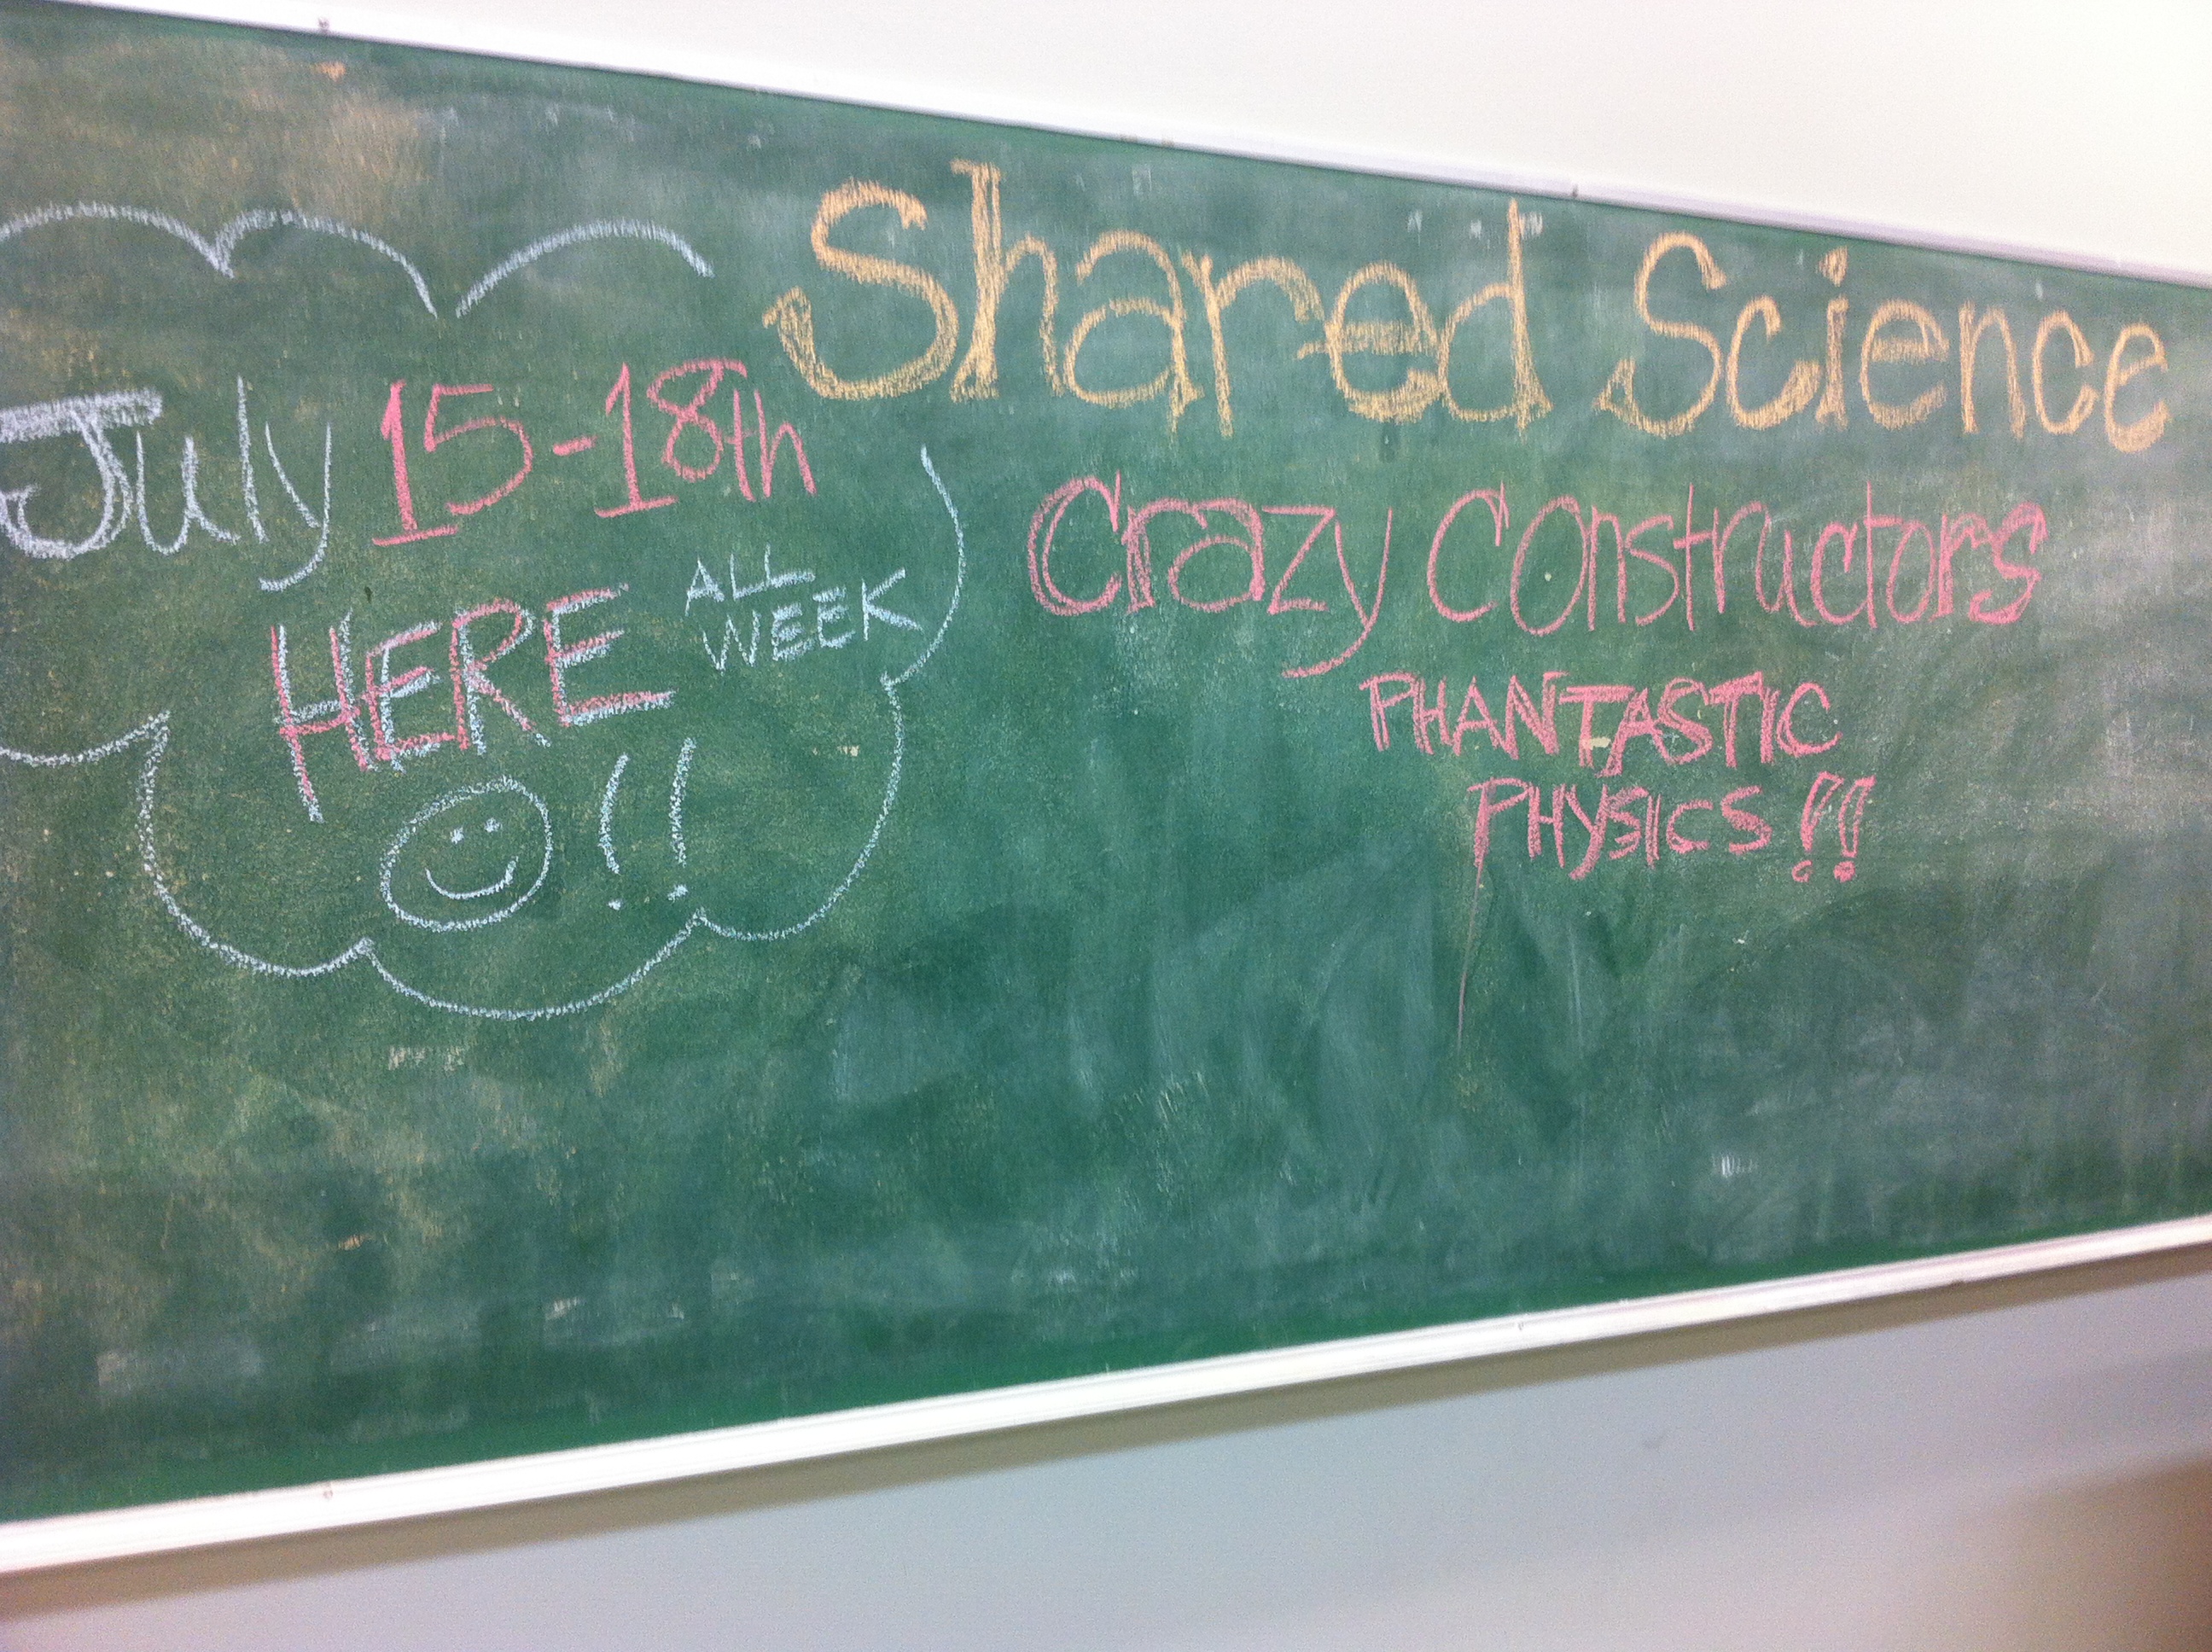 Shared Science
Crazy Constructors
PHANTASTIC
PHYSICS!!
July 15-18th
HERE ALL WEEK
!!